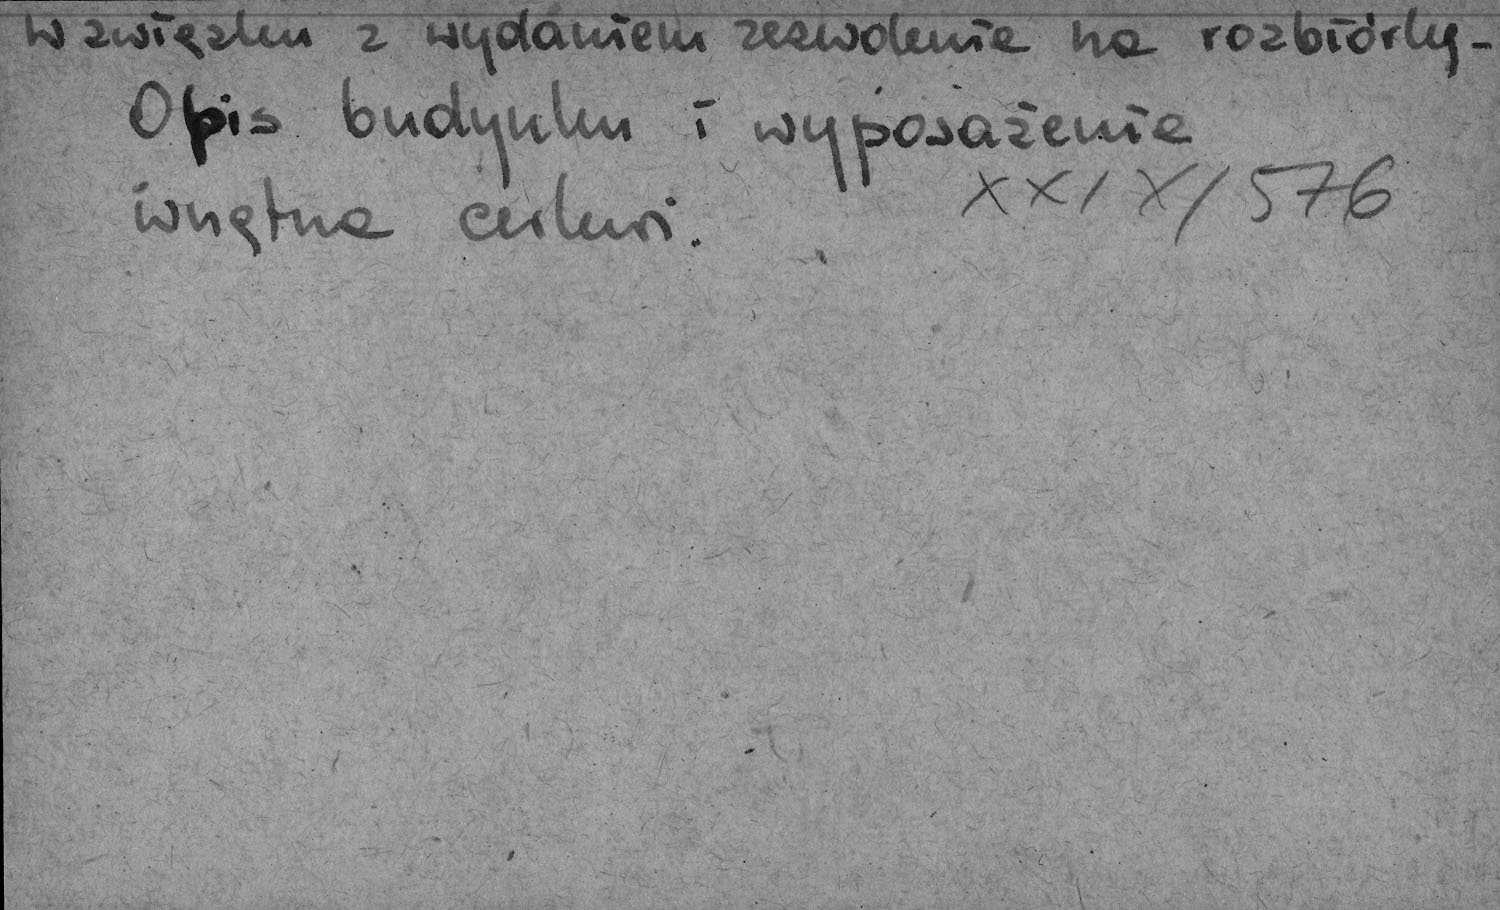 w związku z wydaniem zezwolenia na rozbiórkę -
Opis budynku i wyposażenia
wnętrza cerkwi.
XXIX/576